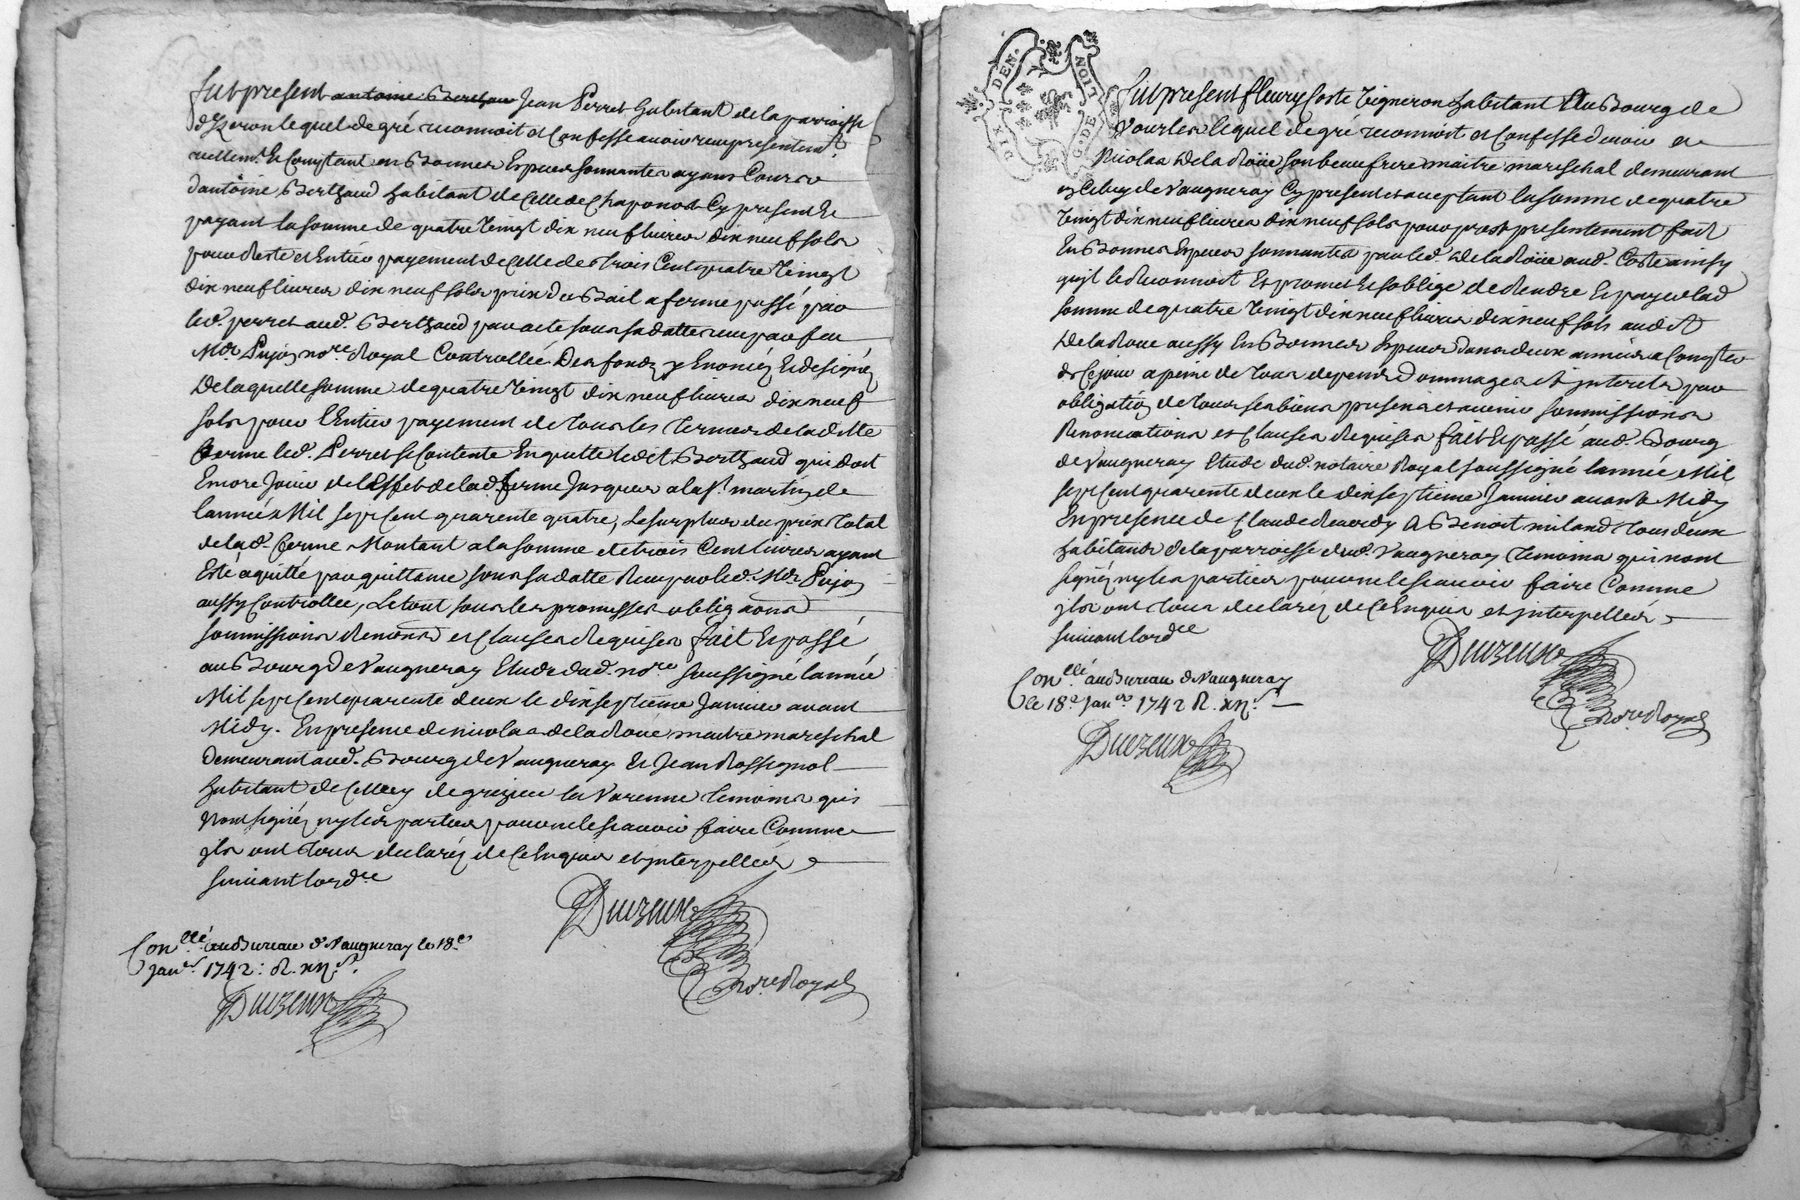 Fut present antoine Berthau Jean Perret habitant de la parroisse
d'Yzeron lequel de gré reconnoit et Confesse avoir reçu presentem.t
reellem.t Et Comptant en Bonnes Especes sonnantes ayans Cours
d'antoine Berthaud habitant de Celle de Chaponost Cy present Et
payant la somme de quatre Vingt dix neuf livres dix neuf sols
pour Reste et Entier payement de Celle de trois Cent quatre Vingt
dix neuf livres dix neuf sols prix du Bail a ferme passé par
led. perret aud. Berthaud par acte sous sa datte reçu par feu
M.e Pujoz no.re Royal Controllée Des fondz y Enoncéz Et designéz
De laquelle somme de quatre Vingt dix neuf livres dix neuf
sols pour l'Entier payement de tous les termes de laditte
ferme led. Perret se Contente En quitte ledit Berthaud qui doit
Encore Jouir de l'Effet de lad. ferme Jusques a la S.t martin de
l'année Mil sept Cent quarente quatre, Le surplus du prix total
de lad. ferme Montant a la somme de trois Cent livres ayant
Este aquitté par quittance sous sa datte Reçu par led. M.e Pujoz
aussy Controllée, Le tout sous les promesses obligaons
soumissions Renons et Clauses Requises fait Et passé
au Bourg de Vaugneray Etude dud. no.re soussigné l'année
Mil sept Cent quarente deux le dix septieme Janvier avant
Midy. En presence de nicolas de la Roüe maitre mareschal
Demeurant aud. Bourg de Vaugneray Et Jean Rossignol
habitant de Celluy de grezieu la Varenne temoins qui
N'ont signéz ny les parties pour ne le scavoir faire Comme
Ils ont tous declaréz de Ce Enquis et Interpelléz
suivant l'ord.ce
Duczeux
No.re Royal
Con.llé au Bureau de Vaugneray le 18.e
Jan.er 1742: R.
Duczeux
DIX DEN.
G. DE LION
Fut present fleury Coste Vigneron habitant du Bourg de
Vourles lequel de gré reconnoit et Confesse devoir a
Nicolas De la Roüe son beau frere maitre mareschal demeurant
en Celuy de Vaugneray Cy present et acceptant la somme de quatre
Vingt dix neuf livres dix neuf sols pour prest presentement fait
En Bonnes Especes sonnantes par led. De la Roüe aud. Coste ainsy
qu'il le Reconnoit Et promet Et s'oblige de Rendre Et payer lad
somme de quatre Vingt dix neuf livres dix neuf sols audit
De la Roue aussy En Bonnes Especes dans deux années a Compter
de Ce jour a peine de tous depens Dommages et interets par
obligation de tous ses biens presens et avenir soumissions
Renonciations et Clauses Requises fait Et passé aud. Bourg
de Vaugneray Etude dud. notaire Royal soussigné l'année Mil
sept Cent quarente deux le dix septieme Janvier avant Midy
En presence de Claude Reverdy Et Benoit miland tous deux
habitants de la parroisse dud. Vaugneray temoins qui n'ont
signéz ny les parties pour ne le scavoir faire Comme
Ils ont tous declaréz de Ce Enquis et Interpelléz
suivant l'ord.ce
Duczeux
No.re Royal
Con.llé au Bureau de Vaugneray
le 18.e Jan.er 1742 R.
Duczeux